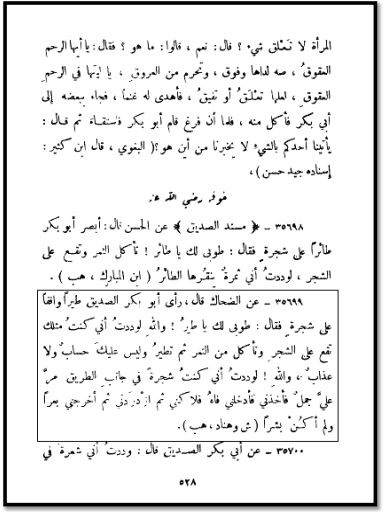 المرأة لا تَعْلق شيء ؟ قال : نعم ، قالوا : ما هو ؟ فقال : يا أيها الرحم
العقوقُ ، صه لداها وفوق ، وتحرم من العروق ِ ، يا ليتها في الرحمِ
العقوقِ ، لعلها تعلَقُ أو تفيقُ ، فأهدى له غنماً ، فجاء ببعضه إلى
أبي بكر فأكل منه ، فلما أن فرغ قام أبو بكر فاستقاء ثم قال :
يأتينا أحدكم بالشيء لا يخبرنا من أين هو ؟ ( البغوي ، قال ابن كثير :
إسناده جيد حسن ) ،
خوفه رضي الله عنه
٣٥٦٩٨ – ﴿ مسند الصديق ﴾ عن الحسن قال : أبصر أبو بكر
طائراً على شجرةٍ فقال : طوبى لك يا طائر ! تأكل الثمر وتقع على
الشجر ، لوددتُ أني ثمرةٌ ينقُرها الطائرُ ( ابن المبارك ، هب ) .
٣٥٦٩٩ – عن الضحاك قال ، رأى أبو بكر الصديق طيراً واقفاً
على شجرةٍ فقال : طوبى لك يا طيرُ ! والله لوددتُ أني كنتُ مثلك
تقع على الشجرِ وتأكل من الثمر ثم تطيرُ وليس عليك حسابٌ ولا
عذابٌ ، والله ! لوددتُ أني كنتُ شجرةً في جانب الطريق مرَّ
عليَّ جملٌ فأخذني فأدخلني فاهُ فلاكني ثم ازدردني ثم أخرجني بعراً
ولم أكُنْ بشراً ( ش وهناد ، هب ) .
٣٥٧٠٠ – عن أبي بكر الصديق قال : وددتُ أني شعرة في
٥٢٨